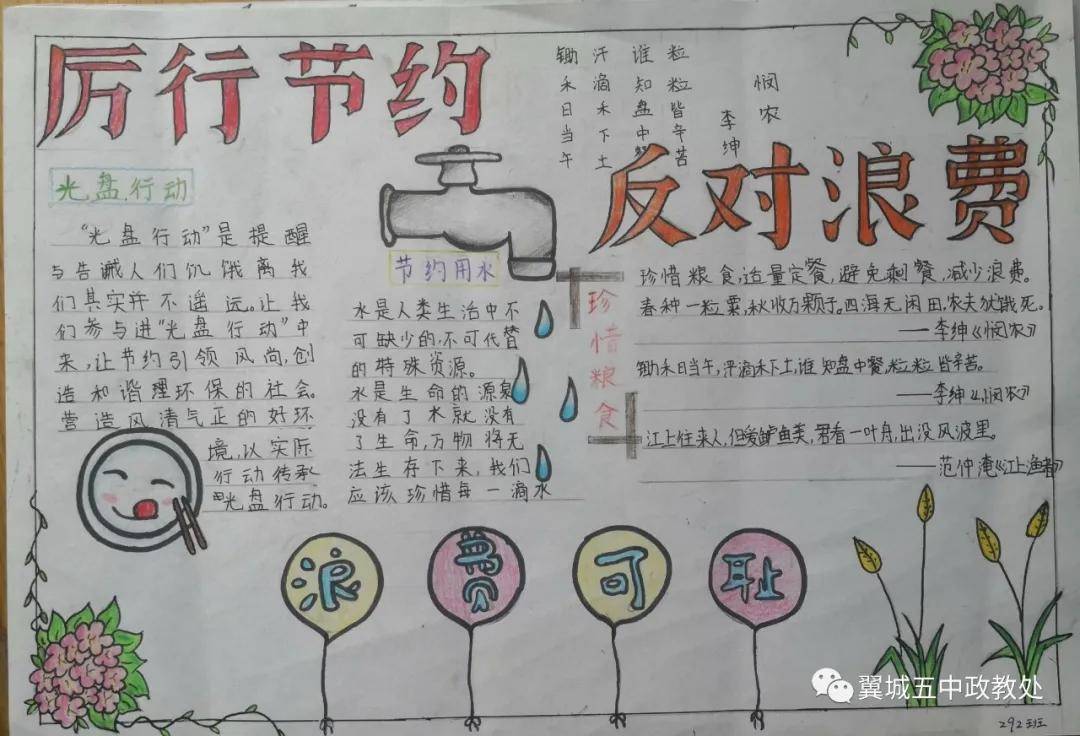 厉行节约
悯农
李绅
锄禾日当午
汗滴禾下土
谁知盘中
粒粒皆辛苦
反对浪费
光盘行动
“光盘行动”是提醒
与告诫人们饥饿离我
们其实并不遥远。让我
们参与进“光盘行动”中
来,让节约引领风尚,创
造和谐理环保的社会。
营造风清气正的好环
境,以实际
行动传承
光盘行动。
节约用水
水是人类生治中不
可缺少的,不可代替
的特殊资源。
水是生命的源泉
没有了水就没有
了生命,万物将无
法生存下来,我们
应该珍惜每一滴水
珍惜粮食
珍惜粮食,适量定餐,避免剩餐,减少浪费。
春种一粒粟,秋收万颗子。四海无闲田,农夫犹饿死。
——李绅《悯农》
锄禾日当午,汗滴禾下土,谁知盘中餐,粒粒皆辛苦。
——李绅《悯农》
江上往来人,但爱鲈鱼美,君看一叶舟,出没风波里。
——范仲淹《江上渔者》
浪费可耻
翼城五中政教处
292班